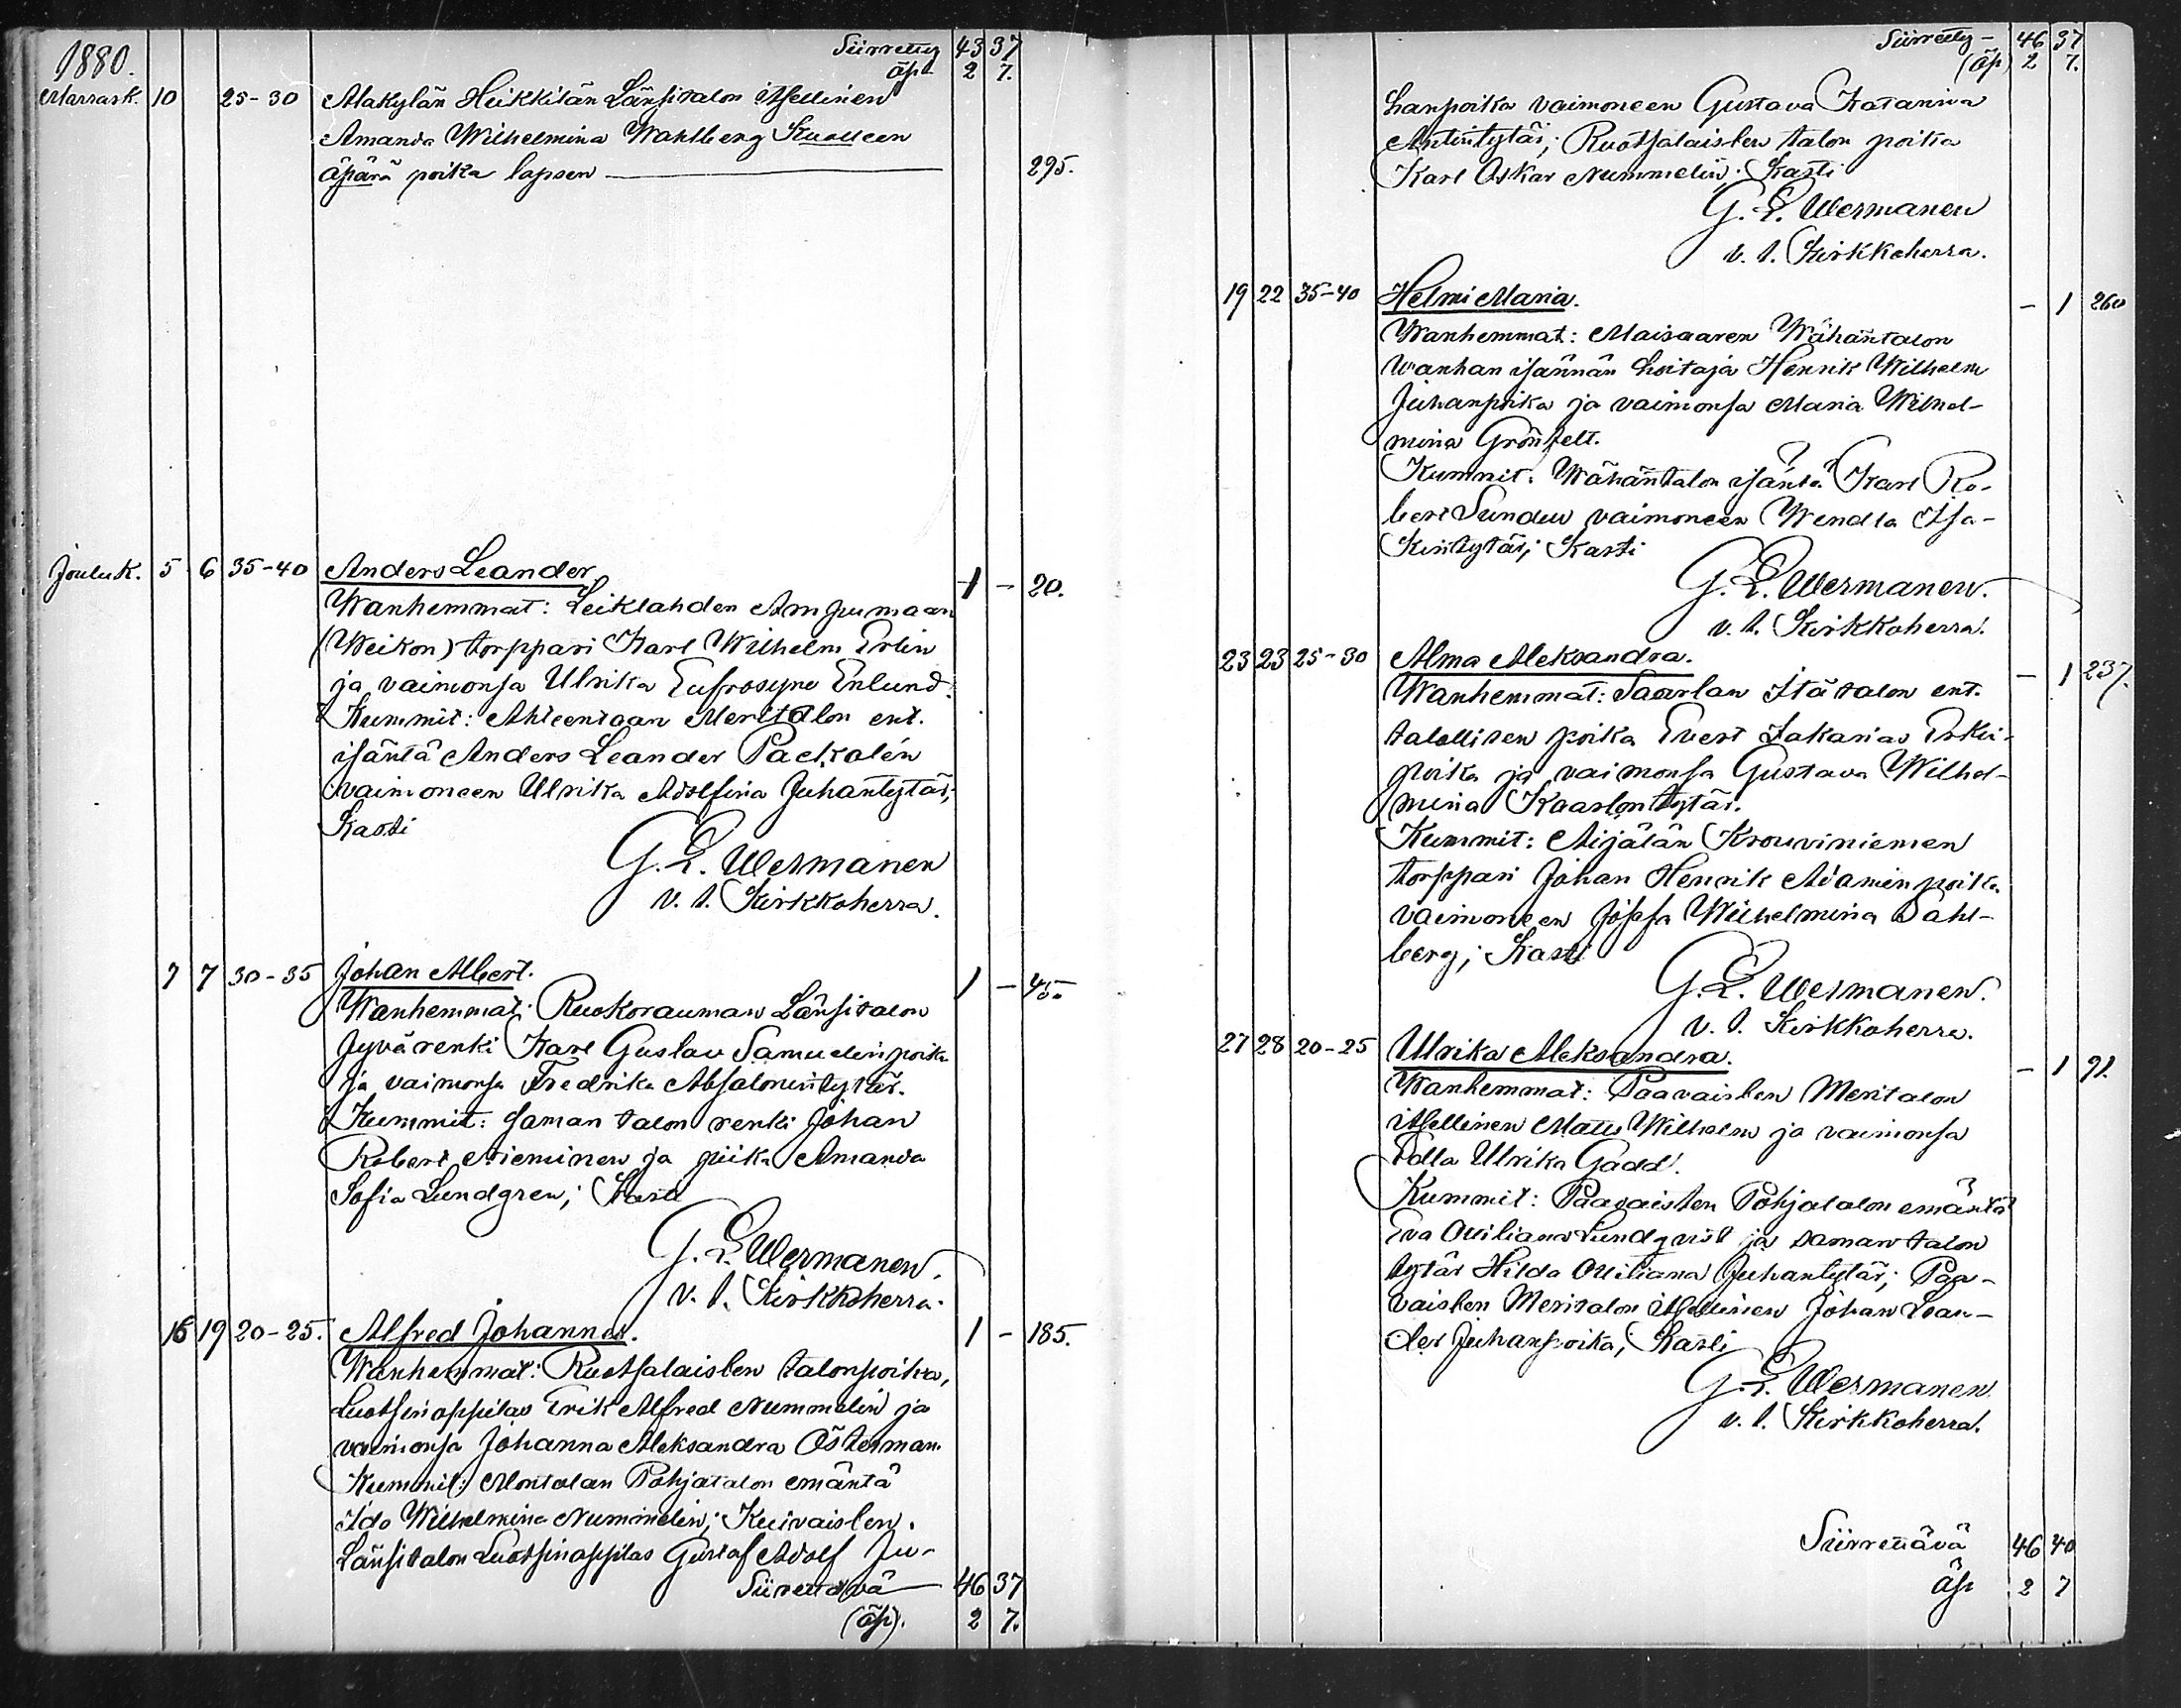 1880. Siirretty 43 37
äp. 2 7.
Marrask. 10 25-30 Alakylän Heikkilän Länsitalon itsellinen
Amanda Wilhelmina Wahlberg Kuolleen
äpärä poika lapsen 295.
Jouluk. 5 6 35-40 Anders Leander 1 - 20.
Wanhemmat: Leiklahden Ampumaan
(Weikon) torppari Karl Wilhelm Erlin
ja vaimonsa Ulrika Eufrosyne Enlund.
Kummit: Ahteentaan Meritalon ent.
isäntä Anders Leander Packalén
vaimoneen Ulrika Adolfina Juhantytär;
Kasti
G. E. Wermanen
v. t. Kirkkoherra.
7 7 30-35 Johan Albert. 1 - 45.
Wanhemmat: Ruokorauman Länsitalon
Jyvärenki Karl Gustav Samuelinpoika
ja vaimonsa Fredrika Absalomintytär.
Kummit: saman talon renki Johan
Robert Nieminen ja piika Amanda
Sofia Lundgren; Kasti
G. E. Wermanen.
v. t. Kirkkoherra.
16 19 20-25. Alfred Johannes. 1 - 185.
Wanhemmat: Ruotsalaisten talonpoika,
Luotsinoppilas Erik Alfred Nummelin ja
vaimonsa Johanna Aleksandra Österman.
Kummit: Montalan Pohjatalon emäntä
Ida Wilhelmina Nummelin; Kuivaisten
Länsitalon Luotsinoppilas Gustaf Adolf Ju-
Siirrettävä 46 37
(äp). 2 7.
Siirretty - 46 37
(äp) 2 7.
hanpoika vaimoneen Gustava Katariina
Antintytär; Ruotsalaisten talon poika
Karl Oskar Nummelin; Kasti
G. E. Wermanen
v. t. Kirkkoherra.
19 22 35-40 Helmi Maria. - 1 260
Wanhemmat: Maisaaren Wähäntalon
wanhan isännän hoitaja Henrik Wilhelm
Juhanpoika ja vaimonsa Maria Wilhel-
mina Grönfelt.
Kummit: Wähäntalon isäntä Karl Ro-
bert Sundew vaimoneen Wendla Isa-
kintytär; Kasti
G. E. Wermanen.
v. t. Kirkkoherra.
23 23 25-30 Alma Aleksandra. - 1 237.
Wanhemmat: Saarlan Itätalon ent.
talollisen poika Evert Sakarias Erkin-
poika ja vaimonsa Gustava Wilhel-
mina Kaarlontytär.
Kummit: Aijälän Krouviniemen
torppari Johan Henrik Adaminpoika
vaimoneen Josefa Wilhelmina Dahl-
berg; Kasti
G. E. Wermanen.
v. t. Kirkkoherra.
27 28 20-25 Ulrika Aleksandra. - 1 91.
Wanhemmat: Paavaisten Meritalon
itsellinen Matts Wilhelm ja vaimonsa
Edla Ulrika Gadd.
Kummit: Paavaisten Pohjatalon emäntä
Eva Ottiliana Lundqvist ja saman talon
tytär Hilda Ottiliana Juhantytär; Paa-
vaisten Meritalon itsellinen Johan Lean-
der Juhanpoika; Kasti
G. E. Wermanen
v. t. Kirkkoherra.
Siirrettävä 46 40
äp 2 7